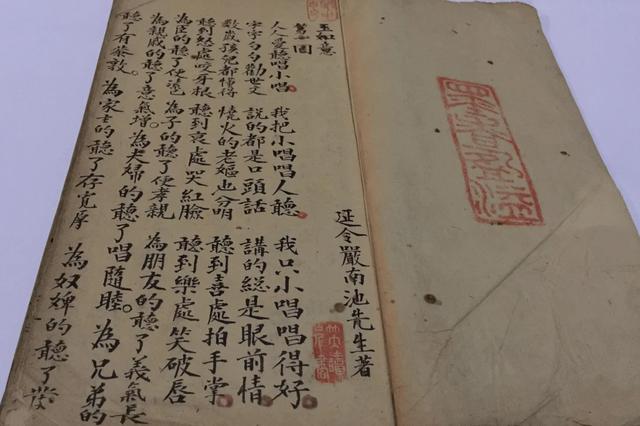 延令嚴南池先生著
人人愛聽唱小唱 我把小唱唱人聽 我只小唱唱得好
字字句句勸世文 說的都是口頭話 講的総是眼前情
數歲孩兒都懂得 燒火的老嫗也分明 聽到善處拍手掌
聽到怒處咬牙根 聽到哀處哭紅臉 聽到樂處笑破唇
為臣的聽了便 為子的聽了便孝親 為朋友的聽了義氣長
為親戚的聽了意氣增 為夫婦的聽了唱隨睦 為兄弟的
聽了有恭敦 為家主的聽了存寬厚 為奴婢的聽了發